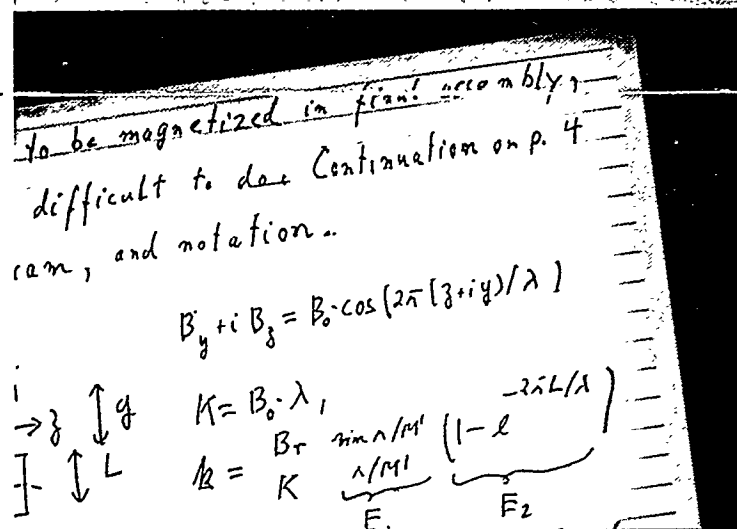 to be magnetized in final assembly,
difficult to do. Continuation on p. 4
and notation.
B_y + i B_z = B_0 · cos(2π(z+iy)/λ)
→z g K = B_0 · λ,
L k = B_r K sin π/M' π/M' (1 - e^{-2πL/λ})
E_2